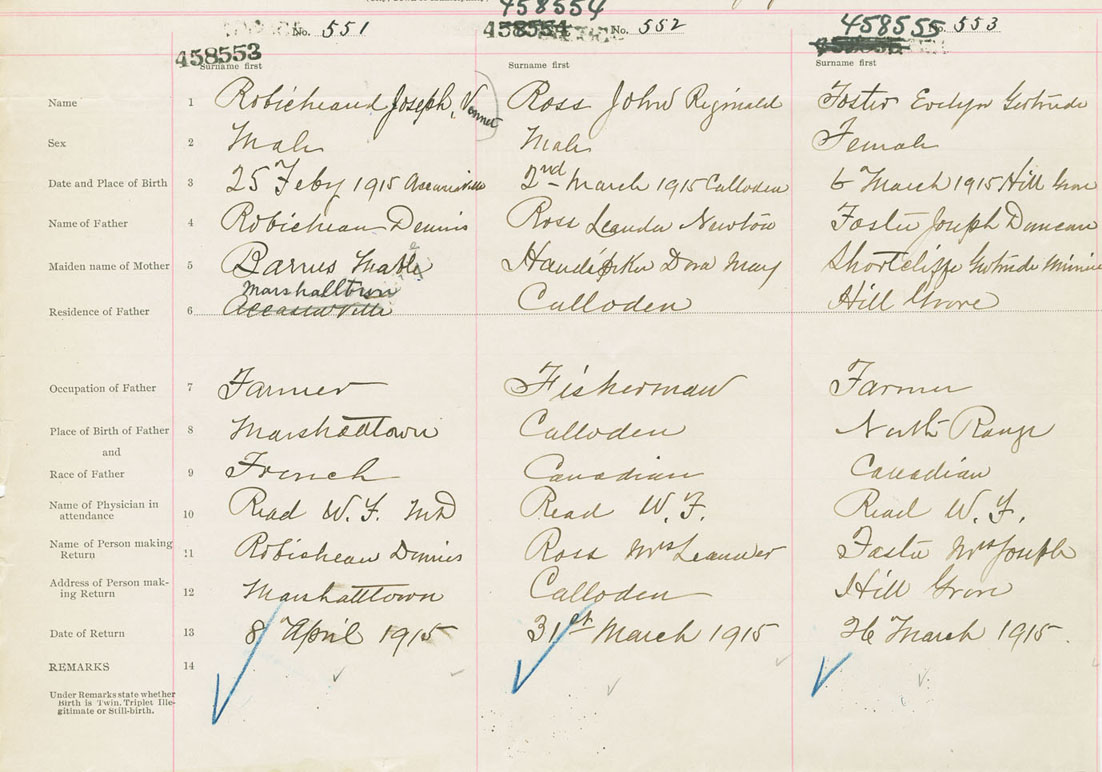 458554
No. 551
458554 No. 552
458555 553
458553
Surname first
Surname first
Surname first
Name 1 Robicheaud Joseph, Vennet Ross John Reginald Foster Evelyn Gertrude
Sex 2 Male Male Female
Date and Place of Birth 3 25 Feby 1915 2nd March 1915 Calloden 6 March 1915 Hill Grove
Name of Father 4 Robicheau Dennis Ross Leander Newton Foster Joseph Duncan
Maiden name of Mother 5 Barnes Mable Dora May Shortcliffe Gertrude Minnie
Marshalltown
Residence of Father 6 Calloden Hill Grove
Occupation of Father 7 Farmer Fisherman Farmer
Place of Birth of Father 8 Marshalltown Calloden North Range
and
Race of Father 9 French Canadian Canadian
Name of Physician in
attendance 10 Read W. F. MD Read W. F. Read W. F.
Name of Person making
Return 11 Robicheau Dennis Ross Mrs Leander Foster Mrs Joseph
Address of Person mak-
ing Return 12 Marshalltown Calloden Hill Grove
Date of Return 13 8 April 1915 31st March 1915 26 March 1915.
REMARKS 14
Under Remarks state whether
Birth is Twin, Triplet Ille-
gitimate or Still-birth.